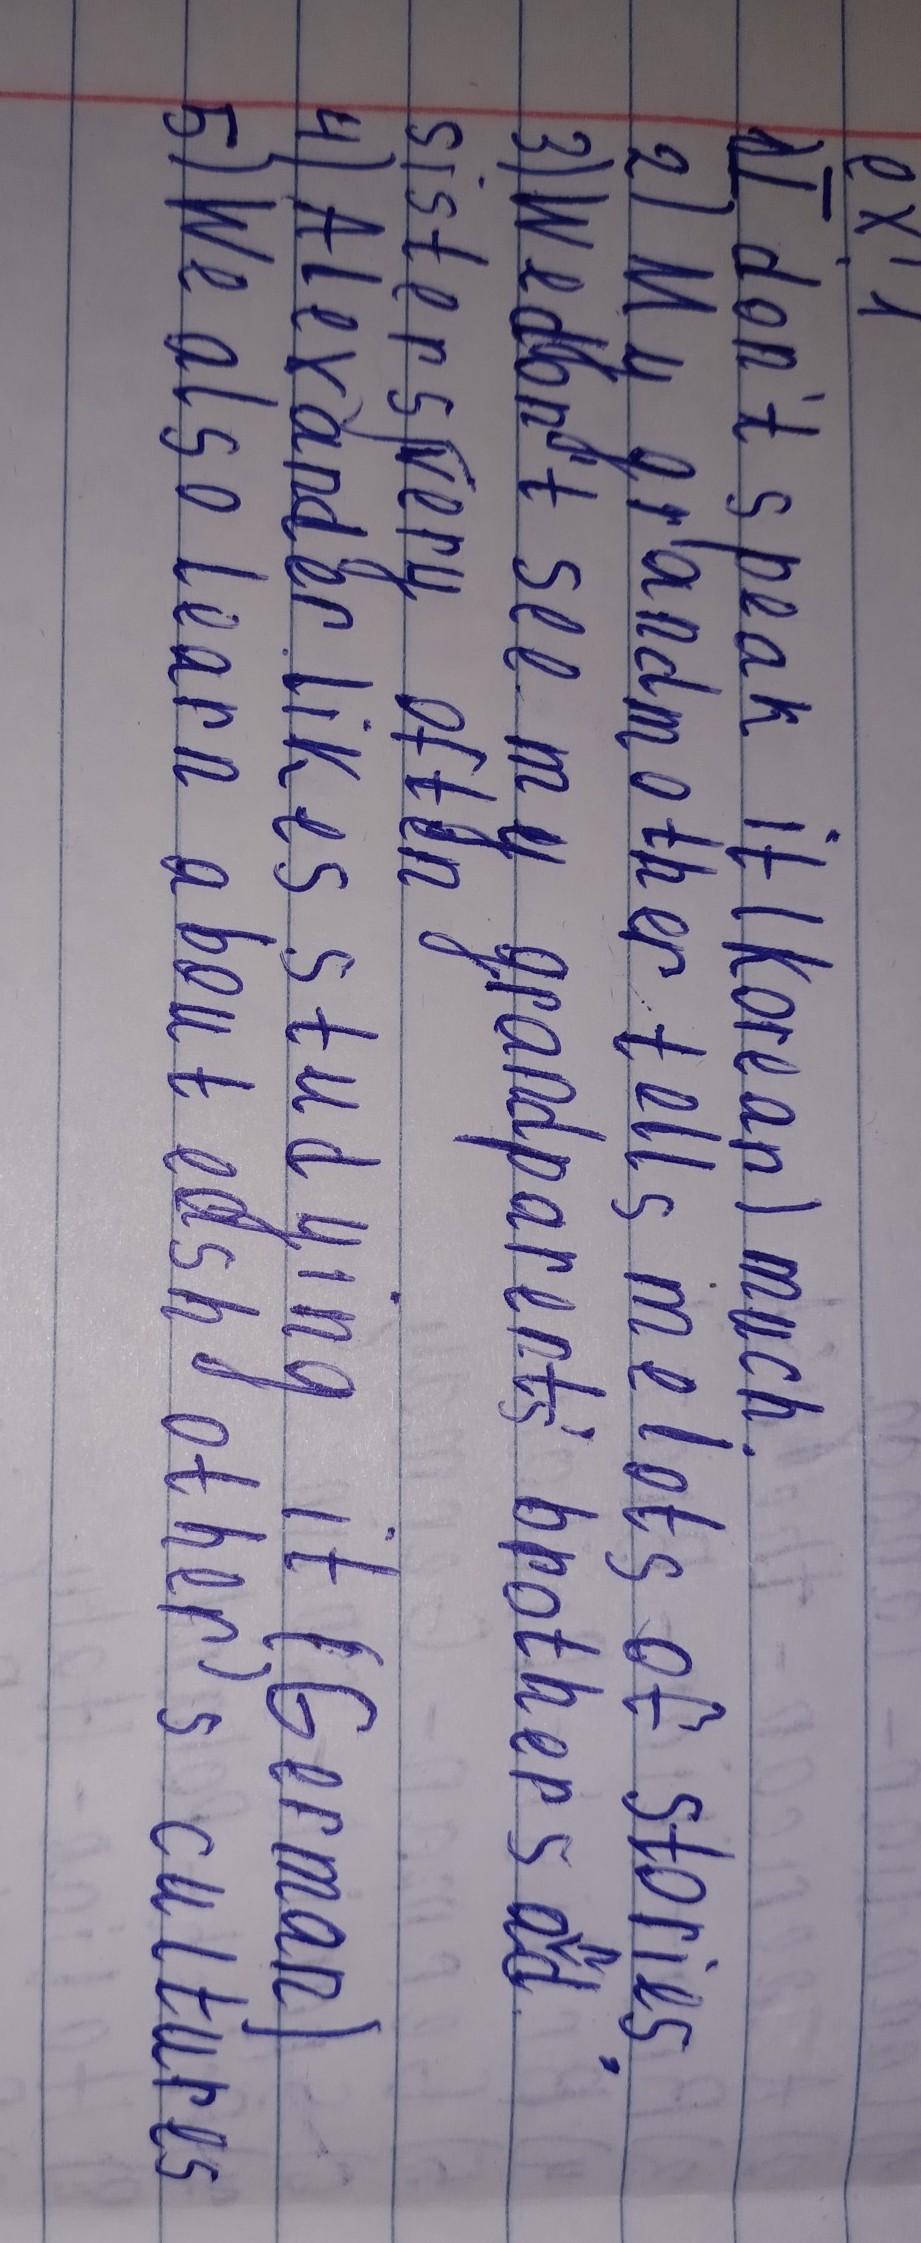 ex. 1
1) I don't speak it (Korean) much.
2) My grandmother tells me lots of stories.
3) We don't see my grandparents' brothers and
sisters very often
4) Alexander likes studying it (German)
5) We also learn about eash other's cultures